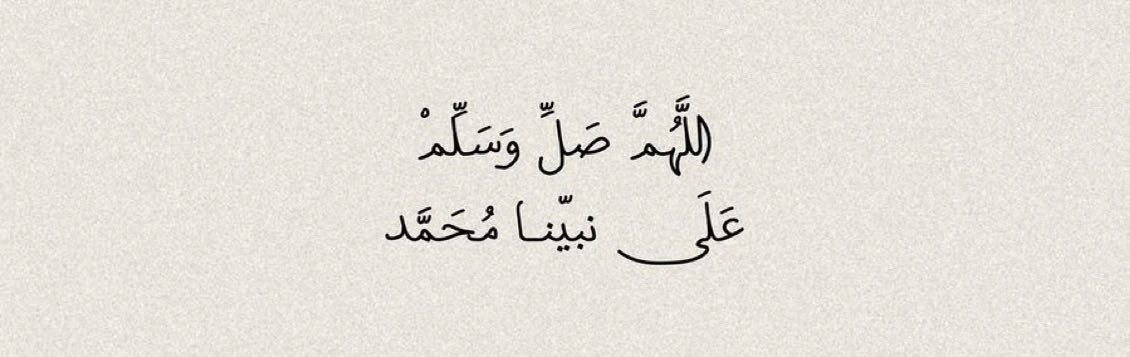 اللَّهُمَّ صَلِّ وَسَلِّمْ
عَلَى نبيّنا مُحَمَّد